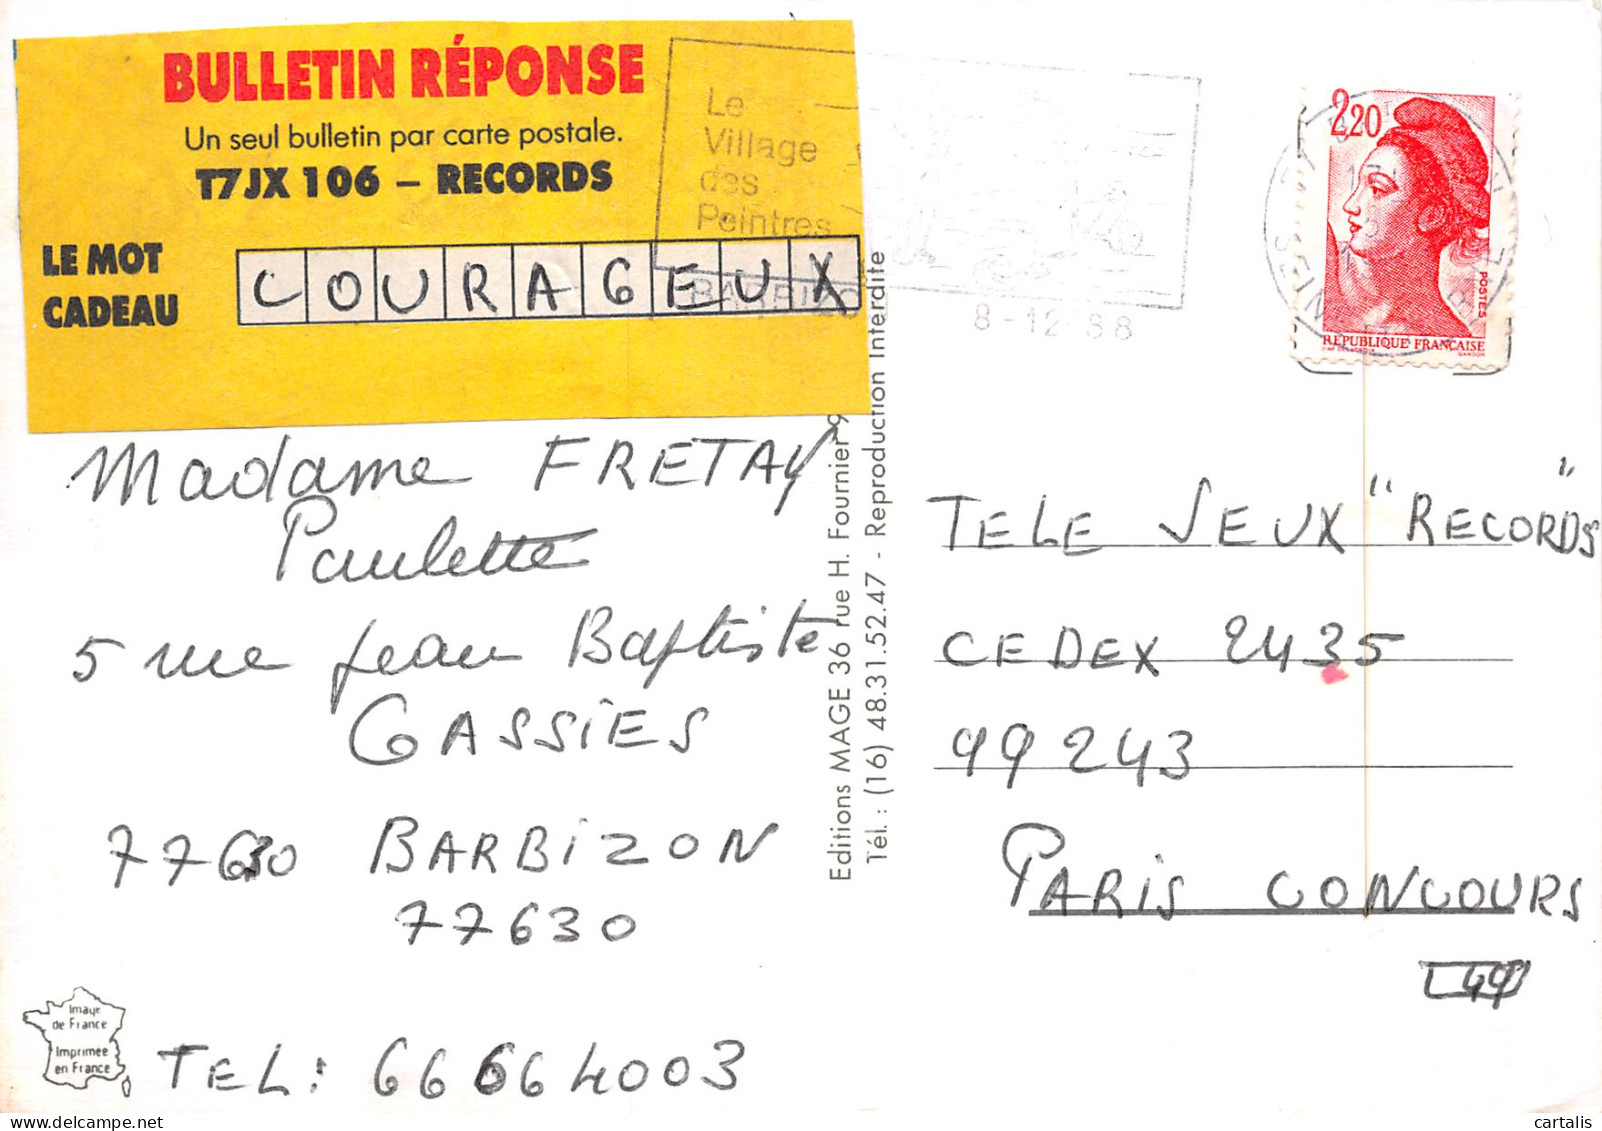 BULLETIN RÉPONSE
Un seul bulletin par carte postale.
T7JX 106 – RECORDS
LE MOT
CADEAU
COURAGEUX
Le
Village
des
Peintres
BARBIZON
8-12-88
2,20
POSTES
REPUBLIQUE FRANÇAISE
GANDON
Madame FRETAY
Paulette
5 rue Jean Baptiste
GASSIES
77630 BARBIZON
77630
TEL: 66664003
Editions MAGE 36 rue H. Fournier 9
Tél. : (16) 48.31.52.47 - Reproduction Interdite
TELE JEUX "RECORDS"
CEDEX 2435
99243
PARIS CONCOURS
Image
de France
Imprimée
en France
cartalis